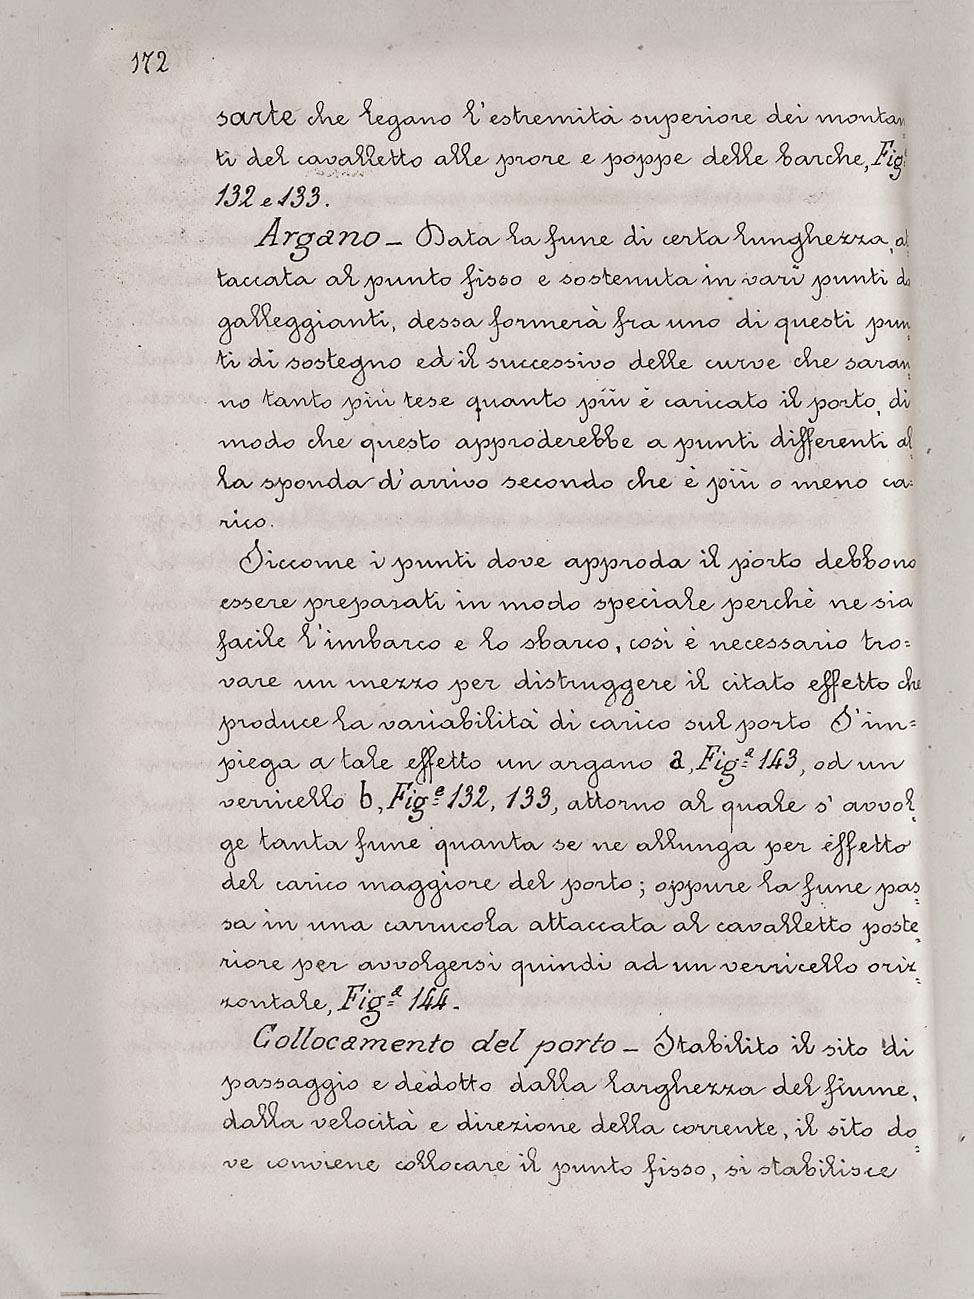 172
sarte che legano l'estremità superiore dei montan
ti del cavalletto alle prore e poppe delle barche, Fig.
132 e 133.
Argano – Data la fune di certa lunghezza, at
taccata al punto fisso e sostenuta in varî punti da
galleggianti, dessa formerà fra uno di questi pun
ti di sostegno ed il successivo delle curve che saran
no tanto più tese quanto più è caricato il porto, di
modo che questo approderebbe a punti differenti al
la sponda d'arrivo secondo che è più o meno ca=
rico.
Siccome i punti dove approda il porto debbono
essere preparati in modo speciale perchè ne sia
facile l'imbarco e lo sbarco, così è necessario tro=
vare un mezzo per distruggere il citato effetto che
produce la variabilità di carico sul porto S'im=
piega a tale effetto un argano a, Fig.ª 143, od un
verricello b, Fig.e 132, 133, attorno al quale s'avvol
ge tanta fune quanta se ne allunga per effetto
del carico maggiore del porto; oppure la fune pas
sa in una carrucola attaccata al cavalletto poste
riore per avvolgersi quindi ad un verricello oriz
zontale, Fig.ª 144.
Collocamento del porto – Stabilito il sito di
passaggio e dedotto dalla larghezza del fiume,
dalla velocità e direzione della corrente, il sito do
ve conviene collocare il punto fisso, si stabilisce